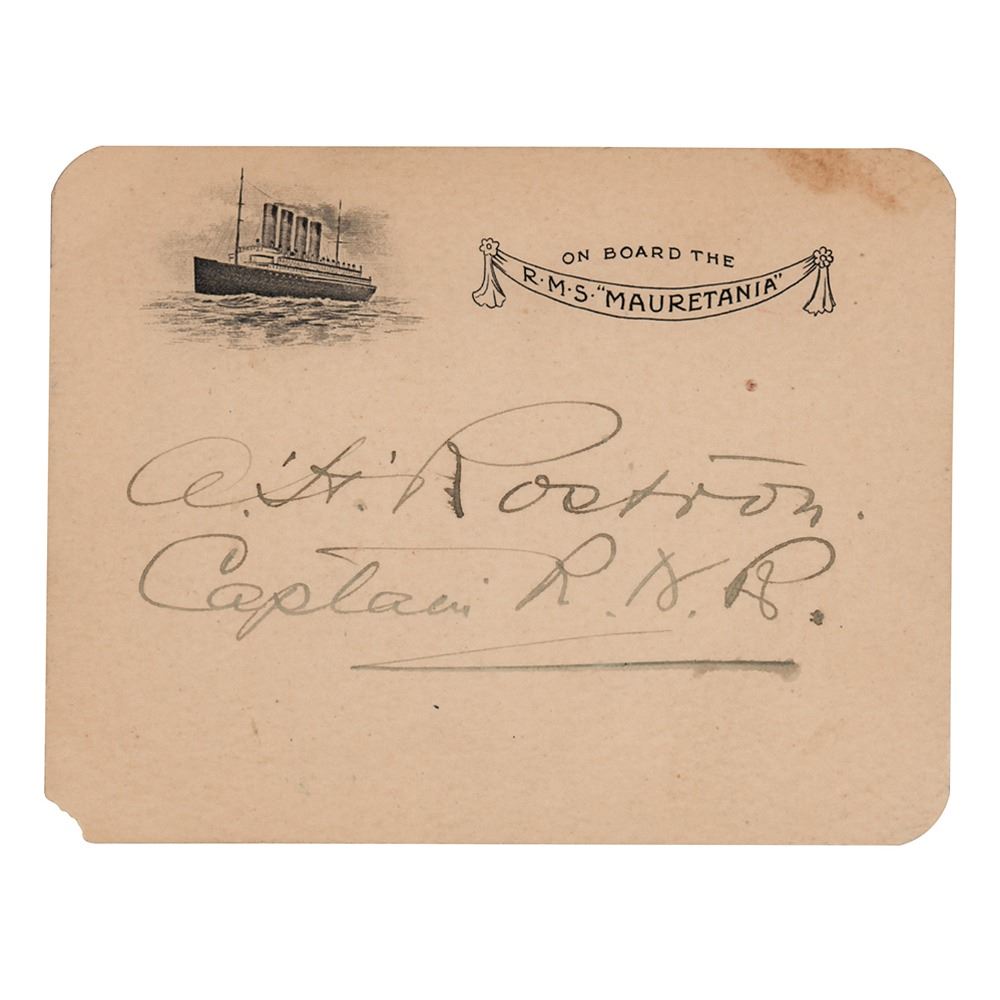 ON BOARD THE
R·M·S· "MAURETANIA"
A. H. Rostron.
Captain R. N. R.